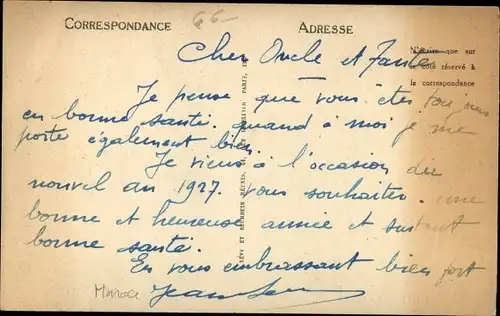 CORRESPONDANCE
66-
ADRESSE
N'écrire que sur
le côté réservé à
la correspondance
Cher Oncle et Tante
Je pense que vous êtes toujours
en bonne santé. quand à moi je me
porte également bien.
Je viens à l'occasion du
nouvel an 1927. vous souhaiter une
bonne et heureuse année et surtout
bonne santé.
En vous embrassant bien fort
Maroc
Jean
LÉVY ET NEURDEIN RÉUNIS, PARIS